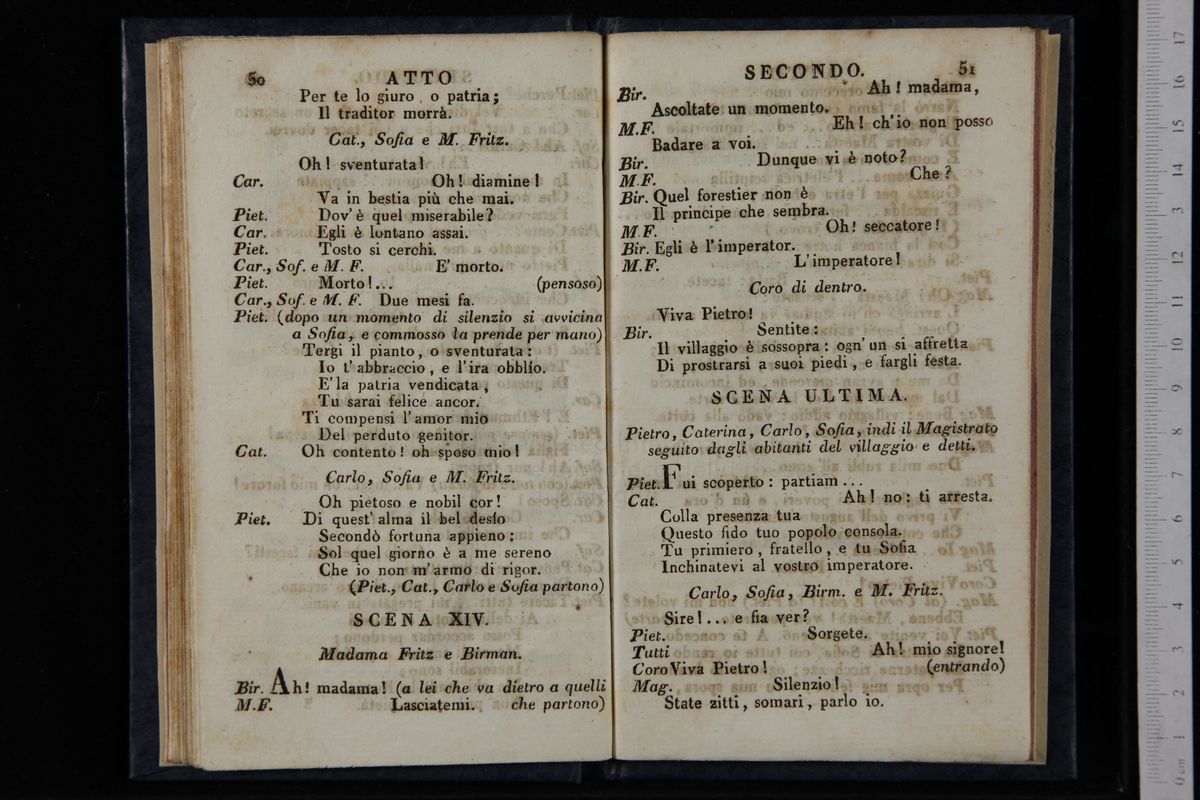 50 ATTO
Per te lo giuro, o patria;
Il traditor morrà.
Cat., Sofia e M. Fritz.
Oh! sventurata!
Car. Oh! diamine!
Va in bestia più che mai.
Piet. Dov'è quel miserabile?
Car. Egli è lontano assai.
Piet. Tosto si cerchi.
Car., Sof. e M. F. E' morto.
Piet. Morto!... (pensoso)
Car., Sof. e M. F. Due mesi fa.
Piet. (dopo un momento di silenzio si avvicina
a Sofia, e commosso la prende per mano)
Tergi il pianto, o sventurata:
Io t'abbraccio, e l'ira obblío.
E' la patria vendicata,
Tu sarai felice ancor.
Ti compensi l'amor mio
Del perduto genitor.
Cat. Oh contento! oh sposo mio!
Carlo, Sofia e M. Fritz.
Oh pietoso e nobil cor!
Piet. Di quest' alma il bel desío
Secondò fortuna appieno:
Sol quel giorno è a me sereno
Che io non m'armo di rigor.
(Piet., Cat., Carlo e Sofia partono)
SCENA XIV.
Madama Fritz e Birman.
Bir. Ah! madama! (a lei che va dietro a quelli
M.F. Lasciatemi. che partono)
SECONDO. 51
Bir. Ah! madama,
Ascoltate un momento.
M.F. Eh! ch'io non posso
Badare a voi.
Bir. Dunque vi è noto?
M.F. Che?
Bir. Quel forestier non è
Il principe che sembra.
M.F. Oh! seccatore!
Bir. Egli è l'imperator.
M.F. L'imperatore!
Coro di dentro.
Viva Pietro!
Bir. Sentite:
Il villaggio è sossopra: ogn'un si affretta
Di prostrarsi a suoi piedi, e fargli festa.
SCENA ULTIMA.
Pietro, Caterina, Carlo, Sofia, indi il Magistrato
seguito dagli abitanti del villaggio e detti.
Piet. Fui scoperto: partiam...
Cat. Ah! no: ti arresta.
Colla presenza tua
Questo fido tuo popolo consola.
Tu primiero, fratello, e tu Sofia
Inchinatevi al vostro imperatore.
Carlo, Sofia, Birm. e M. Fritz.
Sire!... e fia ver?
Piet. Sorgete.
Tutti Ah! mio signore!
Coro Viva Pietro! (entrando)
Mag. Silenzio!
State zitti, somari, parlo io.
0 cm 1 2 3 4 5 6 7 8 9 10 11 12 13 14 15 16 17